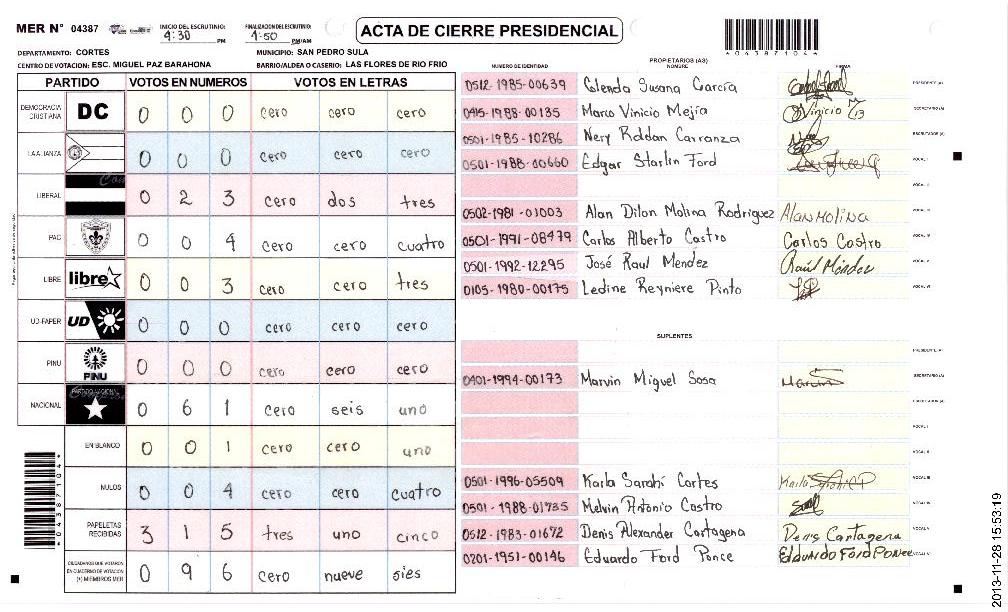 MER N° 04387
INICIO DEL ESCRUTINIO: 4:30 PM
FINALIZACION DEL ESCRUTINIO: 4:50 PM/AM
ACTA DE CIERRE PRESIDENCIAL
*04387104*
DEPARTAMENTO: CORTES
MUNICIPIO: SAN PEDRO SULA
CENTRO DE VOTACION: ESC. MIGUEL PAZ BARAHONA
BARRIO/ALDEA O CASERIO: LAS FLORES DE RIO FRIO
PARTIDO VOTOS EN NUMEROS VOTOS EN LETRAS
DEMOCRACIA CRISTIANA DC 0 0 0 cero cero cero
LA ALIANZA 0 0 0 cero cero cero
LIBERAL 0 2 3 cero dos tres
PAC 0 0 4 cero cero cuatro
LIBRE libre 0 0 3 cero cero tres
UD-FAPER UD 0 0 0 cero cero cero
PINU PINU 0 0 0 cero cero cero
NACIONAL PARTIDO NACIONAL 0 6 1 cero seis uno
EN BLANCO 0 0 1 cero cero uno
NULOS 0 0 4 cero cero cuatro
PAPELETAS RECIBIDAS 3 1 5 tres uno cinco
CIUDADANOS QUE VOTARON EN CUADERNO DE VOTACION (+) MIEMBROS MER 0 9 6 cero nueve sies
*04387104*
PROPIETARIOS (AS)
NUMERO DE IDENTIDAD NOMBRE FIRMA
0512-1985-00639 Glenda Susana García PRESIDENTE (A)
0415-1988-00135 Marco Vinicio Mejía Vinicio SECRETARIO (A)
0501-1985-10286 Nery Roldan Carranza ESCRUTADOR (A)
0501-1988-00660 Edgar Starlin Ford VOCAL I
VOCAL II
0502-1981-01003 Alan Dilon Molina Rodriguez Alan Molina VOCAL III
0501-1991-08479 Carlos Alberto Castro Carlos Castro VOCAL IV
0501-1992-12295 José Raul Mendez Raúl Méndez VOCAL V
0105-1980-00175 Ledine Reyniere Pinto VOCAL VI
SUPLENTES
PRESIDENTE (A)
0401-1994-00173 Marvin Miguel Sosa Marvin SECRETARIO (A)
ESCRUTADOR (A)
VOCAL I
VOCAL II
0501-1996-05509 Karla Sarahí Cortes Karla VOCAL III
0501-1988-01735 Melvin Antonio Castro VOCAL IV
0512-1983-01672 Denis Alexander Cartagena Denis Cartagena VOCAL V
0201-1951-00146 Eduardo Ford Ponce EDUARDO FORD PONCE VOCAL VI
2013-11-28 15:53:19